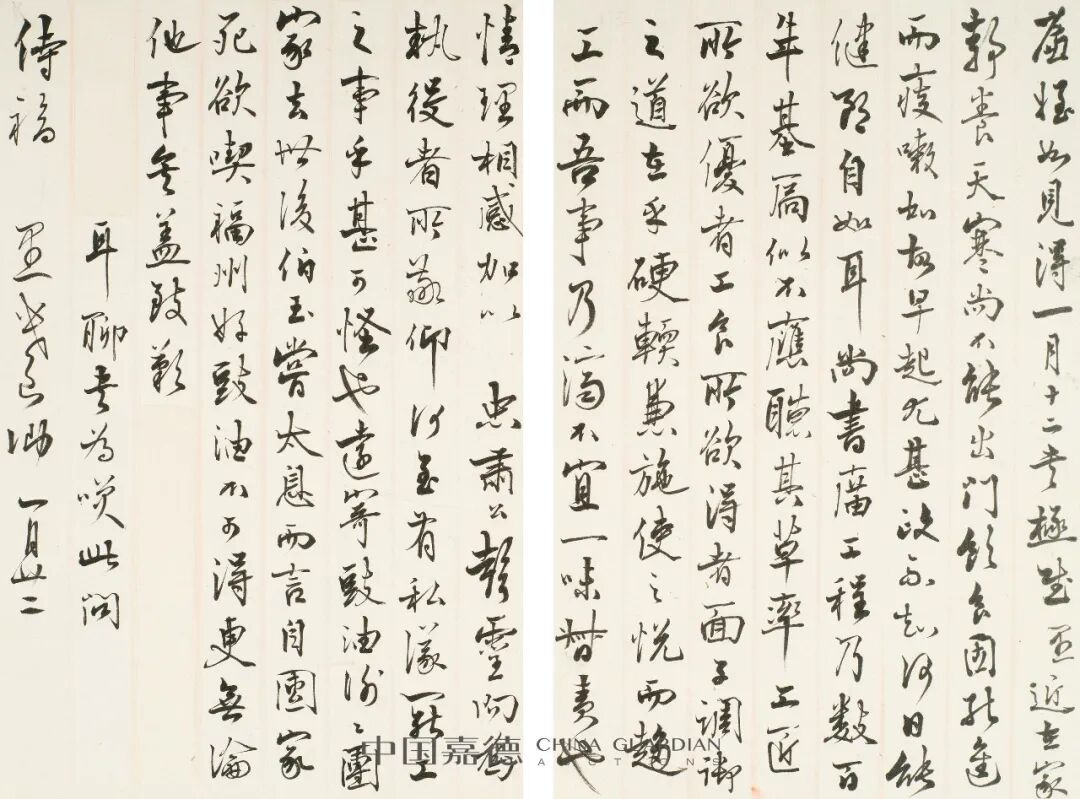 姪如見得一月十二書極慰 至近在家
靜養天寒尚不能出門飲食固能進
而痰嗽如故早起尤甚政不知何日能
健朗自如耳尚書廟工程乃數百
年基局似不應聽其草率 工匠
所欲優者工食所欲得者面子調御
之道在乎硬輭兼施使之悅而趨
工而吾事乃濟不宜一味督責也
情理相感加以 忠肅公聲靈向為
執役者所敬仰何至有私議罷工
之事乎甚可怪也遠寄豉油謝謝團
家去世後伯玉嘗太息而言自團家
死欲喫福州好豉油不可得更無論
他事矣蓋致歎
耳聊書為笑此問
侍福 一月廿二
中国嘉德 CHINA GUARDIAN
AUCTIONS